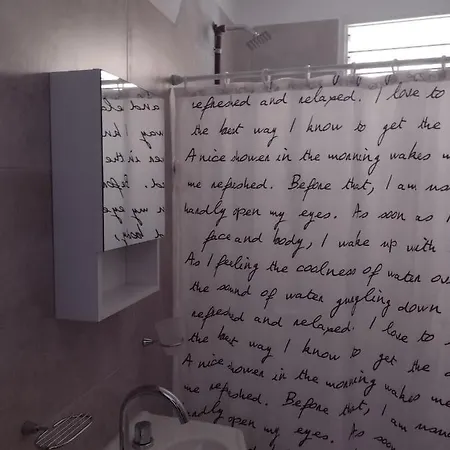 refreshed and relaxed. I love to
the best way I know to get the
A nice shower in the morning wakes
me refreshed. Before that, I am
hardly open my eyes. As soon as I
face and body, I wake up with
As I feeling the coolness of water
the sound of water gurgling down
refreshed and relaxed. I love to
the best way I know to get the
A nice shower in the morning wakes me
me refreshed. Before that, I am
hardly open my eyes. As soon